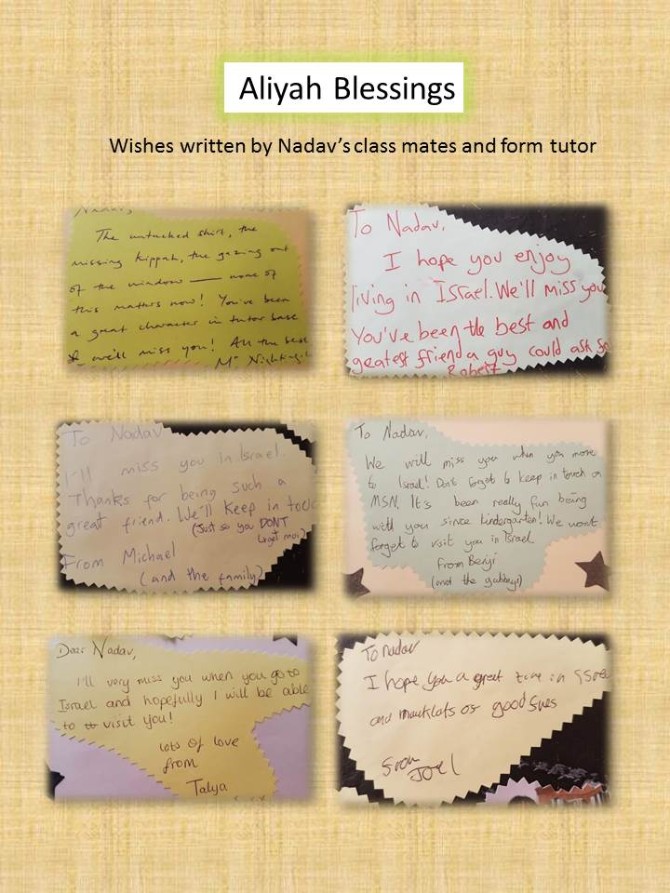 Aliyah Blessings
Wishes written by Nadav's class mates and form tutor
Nadav,
The untucked shirt, the
missing kippah, the gazing out
of the window — none of
this matters now! You've been
a great character in tutor base
& we'll miss you! All the best
Mr Nightingal
To Nadav,
I hope you enjoy
living in Israel. We'll miss you
You've been the best and
greatest friend a guy could ask for
Robert
To Nadav
I'll miss you in Israel.
Thanks for being such a
great friend. We'll keep in touch
(Just so you DONT
forget me!)
From Michael
(and the family)
To Nadav,
We will miss you when you move
to Israel! Don't forget to keep in touch on
MSN. It's been really fun being
with you since kindergarten! We wont
forget to visit you in Israel
From Benji
(and the
Dear Nadav,
I'll very miss you when you go to
Israel and hopefully I will be able
to visit you!
lots of love
from
Talya
To nadav
I hope you a great time in
and lots of
from
Joel